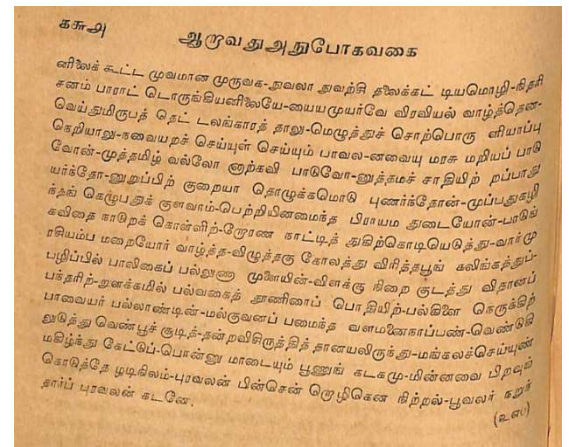 ௧௬௮
ஆறுவதுஅநுபோகவகை
னிலைக் கூட்ட முவமான முருவக-நுவலா நுவற்சி தலைக்கட் டியமொழி-நிதரி
சனம் பாராட் டொருங்கியனிலையே-யையமுயர்வே விரவியல் வாழ்த்தென-
வெய்துமிருபத் தெட் டலங்காரத் தாலு-மெழுத்துச் சொற்பொரு ளியாப்பு
நெறியாலு-நவையறச் செய்யுள் செய்யும் பாவல-னவையு மரசு மறியப் பாடு
வோன்-முத்தமிழ் வல்லோ னாற்கவி பாடுவோ-னுத்தமச் சாதியிற் றப்பாது
யர்ந்தோ-னுறுப்பிற் குறையா தொழுக்கமொடு புணர்ந்தோன்-முப்பதுகழி
ந்தங் கெழுபதுக் குளவாம்-பெற்றியினமைந்த பிராயம துடையோன்-பாடுங்
கவிதை நாடுறக் கொள்ளிற்-றோரண நாட்டித் துகிற்கொடியெடுத்து-வார்மு
ரசியம்ப மறையோர் வாழ்த்த-விழுத்தகு கோலத்து விரித்தபூங் கலிங்கத்துப்-
பழிப்பில் பாலிகைப் பல்லுணா முளையின்-விளக்கு நிறை குடத்து விதானப்
பந்தரிற்-றுளக்கமில் பல்வகைத் தூணிரைப் பொதியிற்-பல்கிளை நெருக்கிற்
பாவையர் பல்லாண்டின்-மல்குவனப் பமைந்த வளமனைநாப்பண்-வெண்டுகி
லுடுத்து வெண்பூச் சூடித்-தன்றவிசிருத்தித் தானயலிருந்து-மங்கலச்செய்யுண்
மகிழ்ந்து கேட்டுப்-பொன்னு மாடையும் பூணுங் கடகமு-மின்னவை பிறவுங்
கொடுத்தே ழடிநிலம்-புரவலன் பின்சென் றொழிகென நிற்றல்-பூவலர் நறுந்
தார்ப் புரவலன் கடனே.